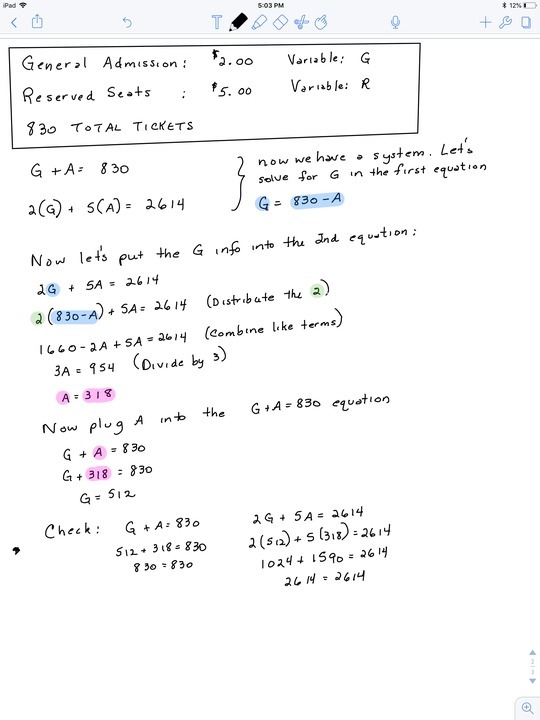 iPad
5:03 PM
12%
T
General Admission: $2.00 Variable: G
Reserved Seats : $5.00 Variable: R
830 TOTAL TICKETS
G + A = 830
2(G) + 5(A) = 2614
now we have a system. Let's
solve for G in the first equation
G = 830-A
Now let's put the G info into the 2nd equation:
2G + 5A = 2614
2(830-A) + 5A = 2614 (Distribute the 2)
1660 - 2A + 5A = 2614 (Combine like terms)
3A = 954 (Divide by 3)
A = 318
Now plug A into the G+A=830 equation
G + A = 830
G + 318 = 830
G = 512
Check: G + A = 830
512 + 318 = 830
830 = 830
2G + 5A = 2614
2(512) + 5(318) = 2614
1024 + 1590 = 2614
2614 = 2614